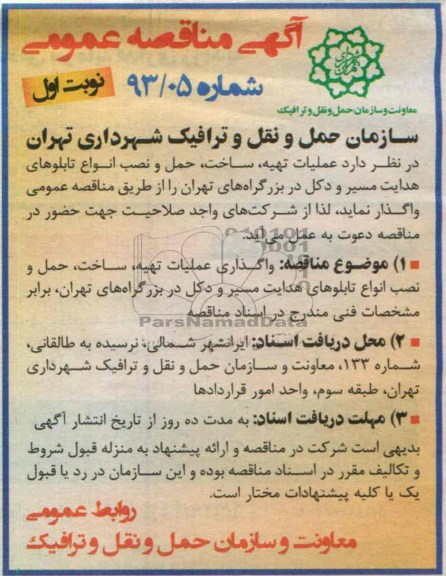 آگهی مناقصه عمومی
شماره ۹۳/۰۵
نوبت اول
معاونت و سازمان حمل و نقل و ترافیک
سازمان حمل و نقل و ترافیک شهرداری تهران
در نظر دارد عملیات تهیه، ساخت، حمل و نصب انواع تابلوهای
هدایت مسیر و دکل در بزرگراه‌های تهران را از طریق مناقصه عمومی
واگذار نماید، لذا از شرکت‌های واجد صلاحیت جهت حضور در
مناقصه دعوت به عمل می‌آید.
۱) موضوع مناقصه: واگذاری عملیات تهیه، ساخت، حمل و
نصب انواع تابلوهای هدایت مسیر و دکل در بزرگراه‌های تهران، برابر
مشخصات فنی مندرج در اسناد مناقصه
ParsNamadData
۲) محل دریافت اسناد: ایرانشهر شمالی، نرسیده به طالقانی،
شماره ۱۳۳، معاونت و سازمان حمل و نقل و ترافیک شهرداری
تهران، طبقه سوم، واحد امور قراردادها
۳) مهلت دریافت اسناد: به مدت ده روز از تاریخ انتشار آگهی
بدیهی است شرکت در مناقصه و ارائه پیشنهاد به منزله قبول شروط
و تکالیف مقرر در اسناد مناقصه بوده و این سازمان در رد یا قبول
یک یا کلیه پیشنهادات مختار است.
روابط عمومی
معاونت و سازمان حمل و نقل و ترافیک